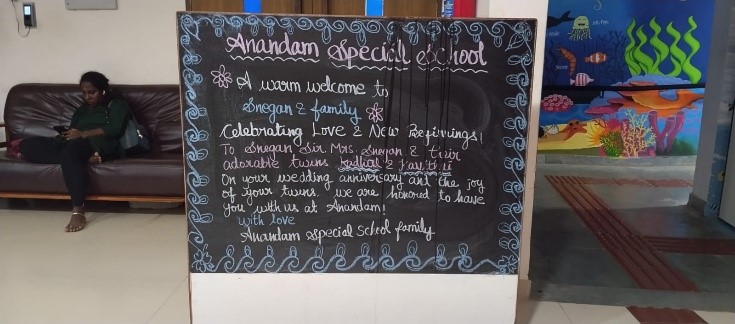 Anandam Special School
A warm welcome to
Snegan & family
Celebrating Love & New Beginnings!
To Snegan Sir Mrs. Snegan & their
adorable twins &
On your wedding anniversary and the joy
of your twins. we are honored to have
you with us at Anandam!
with love
Anandam Special School family